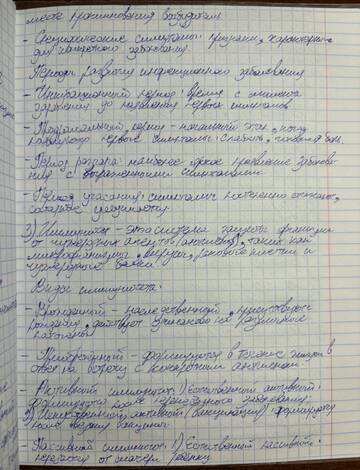 месте проникновения возбудителя
- Специфические симптомы: признаки, характерные
для конкретного заболевания.
Периоды развития инфекционного заболевания
- Инкубационный период: время с момента
заражения до появления первых симптомов
- Продромальный период - начальный этап, когда
первые симптомы: слабость, головная боль.
- Период разгара: наиболее яркое проявление заболева-
ния с выраженными симптомами.
- Период угасания: симптомы постепенно
3) Иммунитет - это система защиты организма
от чужеродных агентов (антигенов), таких как
микроорганизмы, вирусы, и
чужеродного белка.
Виды иммунитета:
- Врождённый - наследственный,
рождения, действует на различные
патогены
- Приобретённый - формируется в течение жизни в
ответ на встречу с конкретными антигенами
- Активный иммунитет: 1) естественный активный:
формируется после перенесённого заболевания;
2) Искусственный активный (вакцинация): формируется
после вакцины
- Пассивный иммунитет: 1) Естественный пассивный:
от матери ребёнку